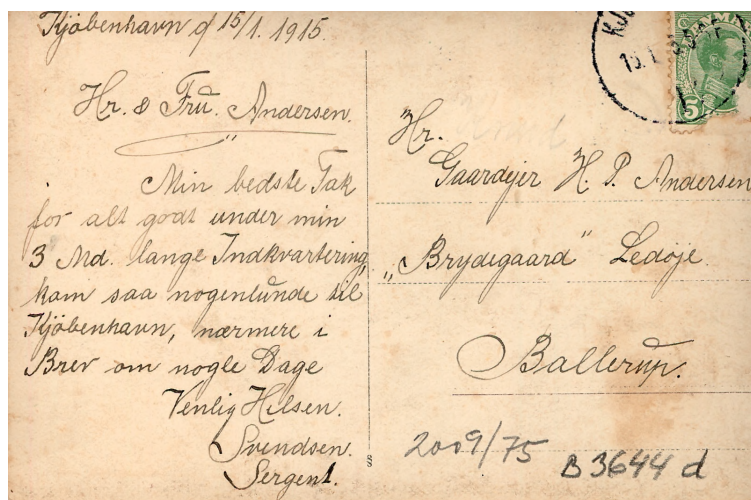 Kjøbenhavn d 15/1. 1915.
Hr. & Fru. Andersen.
Min bedste Tak
for alt godt under min
3 Md. lange Indkvartering,
kam saa nogenlunde til
Kjøbenhavn, nærmere i
Brev om nogle Dage
Venlig Hilsen.
Svendsen.
Sergent.
Hr.
Gaardejer H. P. Andersen
"Brydegaard" Ledøje.
Ballerup.
2009/75
B 3644 d
5
S